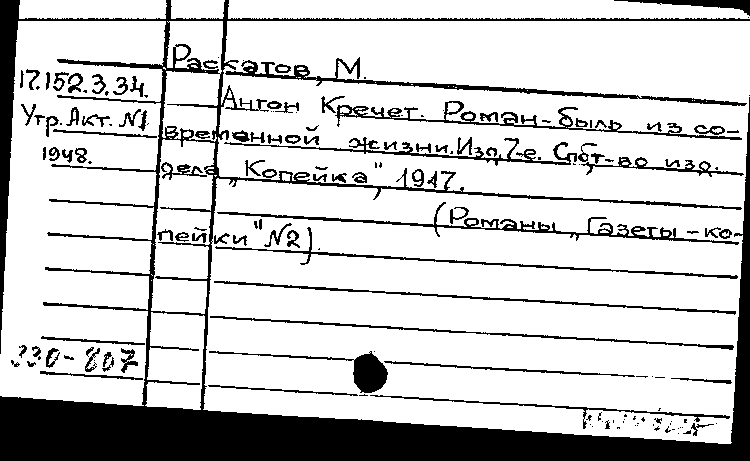 Раскатов, М.
17.152.3.34.
Антон Кречет. Роман-быль из со-
Утр. Акт. №1
временной жизни. Изд. 7-е. Спб, т-во изд.
1948.
дела „Копейка", 1917.
(Романы „Газеты-ко-
пейки" №2).
330-807